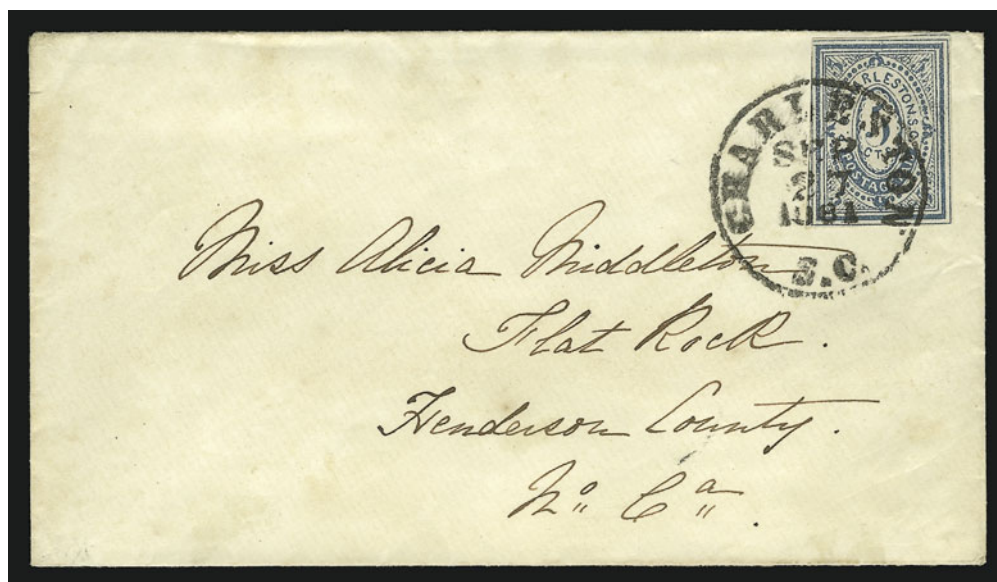 CHARLESTON. S.C.
5
CTS
POSTAGE
CHARLESTON
SEP
27
1861
S.C.
Miss Alicia Middleton
Flat Rock.
Henderson County.
No. Ca.